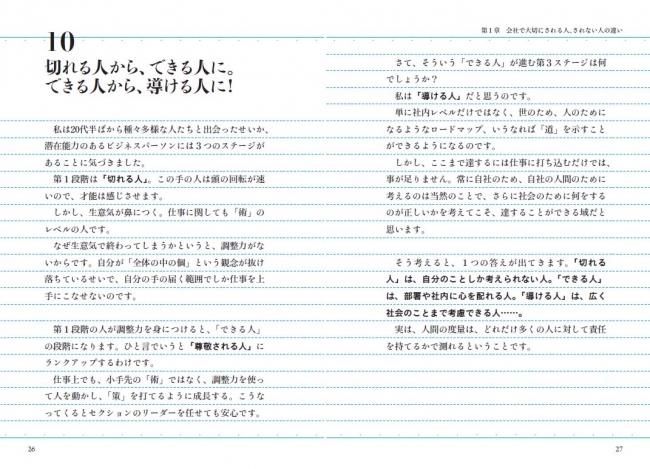 10
切れる人から、できる人に。
できる人から、導ける人に!
私は20代半ばから種々多様な人たちと出会ったせいか、
潜在能力のあるビジネスパーソンには３つのステージが
あることに気づきました。
第１段階は「切れる人」。この手の人は頭の回転が速
いので、才能は感じさせます。
しかし、生意気が鼻につく。仕事に関しても「術」の
レベルの人です。
なぜ生意気で終わってしまうかというと、調整力がな
いからです。自分が「全体の中の個」という観念が抜け
落ちているせいで、自分の手の届く範囲でしか仕事を上
手にこなせないのです。
第１段階の人が調整力を身につけると、「できる人」
の段階になります。ひと言でいうと「尊敬される人」に
ランクアップするわけです。
仕事上でも、小手先の「術」ではなく、調整力を使っ
て人を動かし、「策」を打てるように成長する。こうな
ってくるとセクションのリーダーを任せても安心です。
26
第１章 会社で大切にされる人、されない人の違い
さて、そういう「できる人」が進む第３ステージは何
でしょうか？
私は「導ける人」だと思うのです。
単に社内レベルだけではなく、世のため、人のために
なるようなロードマップ、いうなれば「道」を示すこと
ができるようになるのです。
しかし、ここまで達するには仕事に打ち込むだけでは、
事が足りません。常に自社のため、自社の人間のために
考えるのは当然のことで、さらに社会のために何をする
のが正しいかを考えてこそ、達することができる域だと
思います。
そう考えると、１つの答えが出てきます。「切れる
人」は、自分のことしか考えられない人。「できる人」
は、部署や社内に心を配れる人。「導ける人」は、広く
社会のことまで考慮できる人……。
実は、人間の度量は、どれだけ多くの人に対して責任
を持てるかで測れるということです。
27